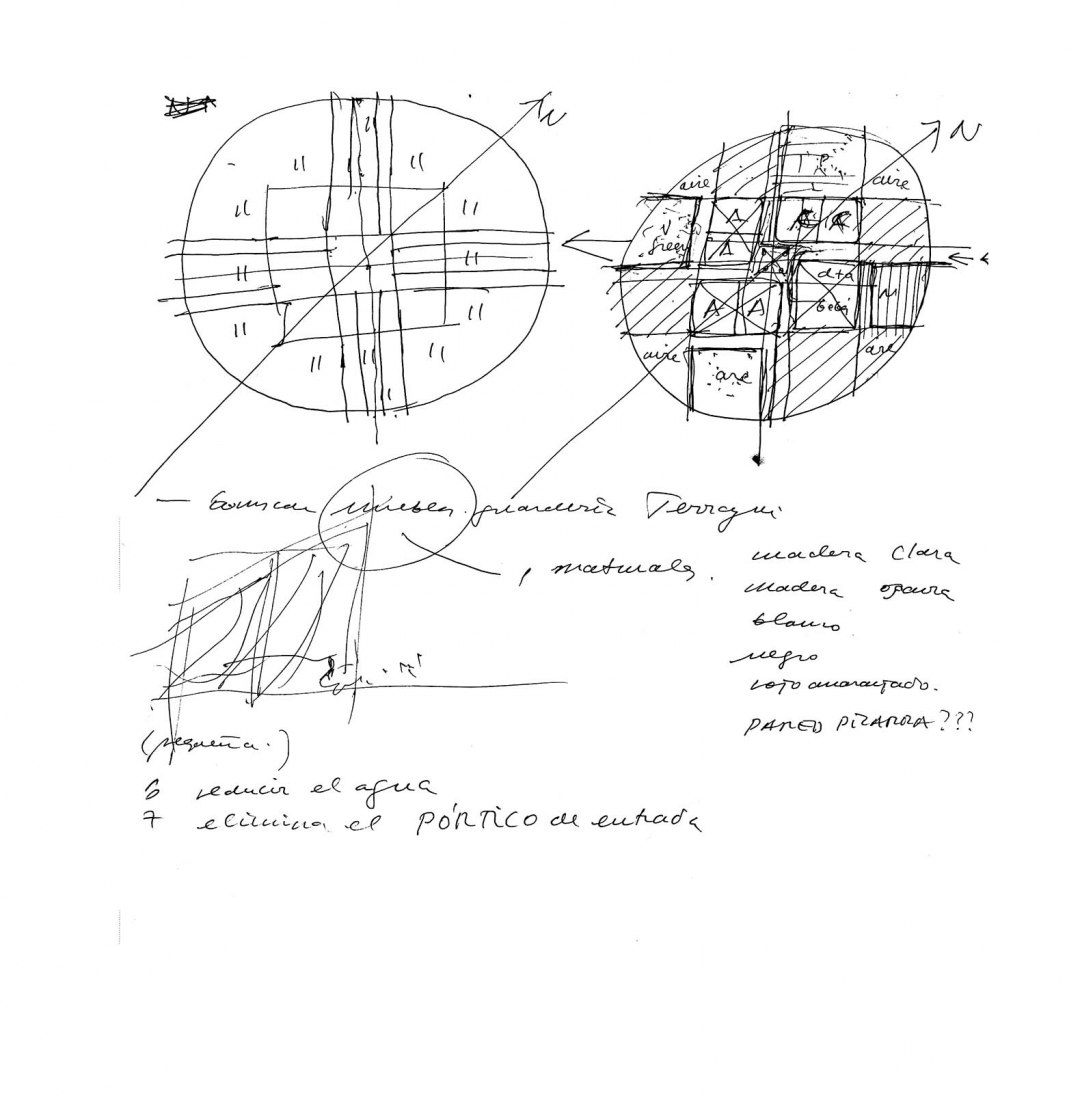 N
N
aire
aire
A
A
A A
aire
aire
aire
— buscar muebles guardería Terragni
, materiales.
madera clara
madera oscura
blanco
negro
rojo anaranjado.
PARED PIZARRA???
(pequeña.)
6 reducir el agua
7 elimina el PÓRTICO de entrada